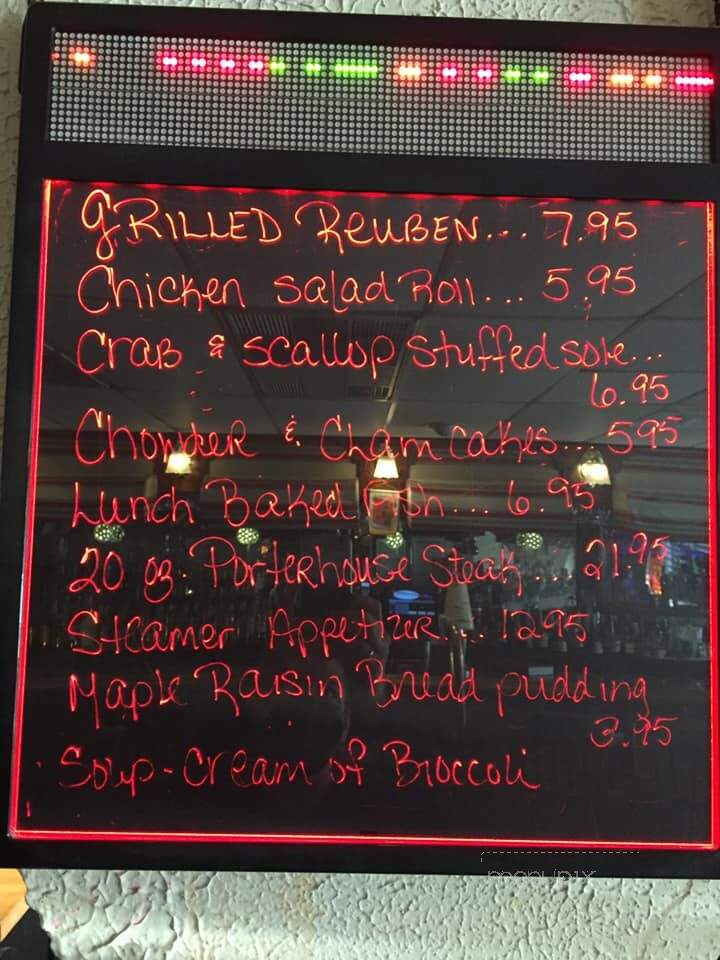 GRILLED REUBEN... 7.95
Chicken salad Roll... 5.95
Crab & scallop stuffed sole...
6.95
Chowder & Clam cakes... 595
Lunch Baked Fish... 6.95
20 oz. Porterhouse Steak... 21.95
Steamer Appetizer.... 1295
Maple Raisin Bread pudding
3.95
Soup-Cream of Broccoli
menupix